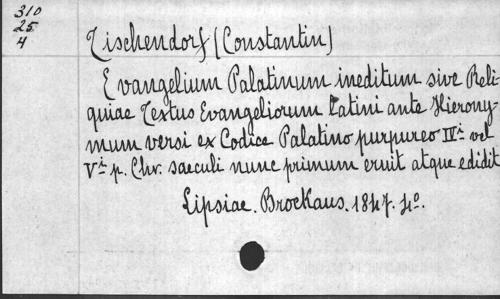 310
25
4
Tischendorf (Constantin)
Evangelium Palatinum ineditum sive Reli-
quiae Textus Evangeliorum Latini ante Hierony-
mum versi ex Codice Palatino purpureo IV.i vel
V.i p. Chr. saeculi nunc primum eruit atque edidit
Lipsiae. Brockaus. 1847. 4o.